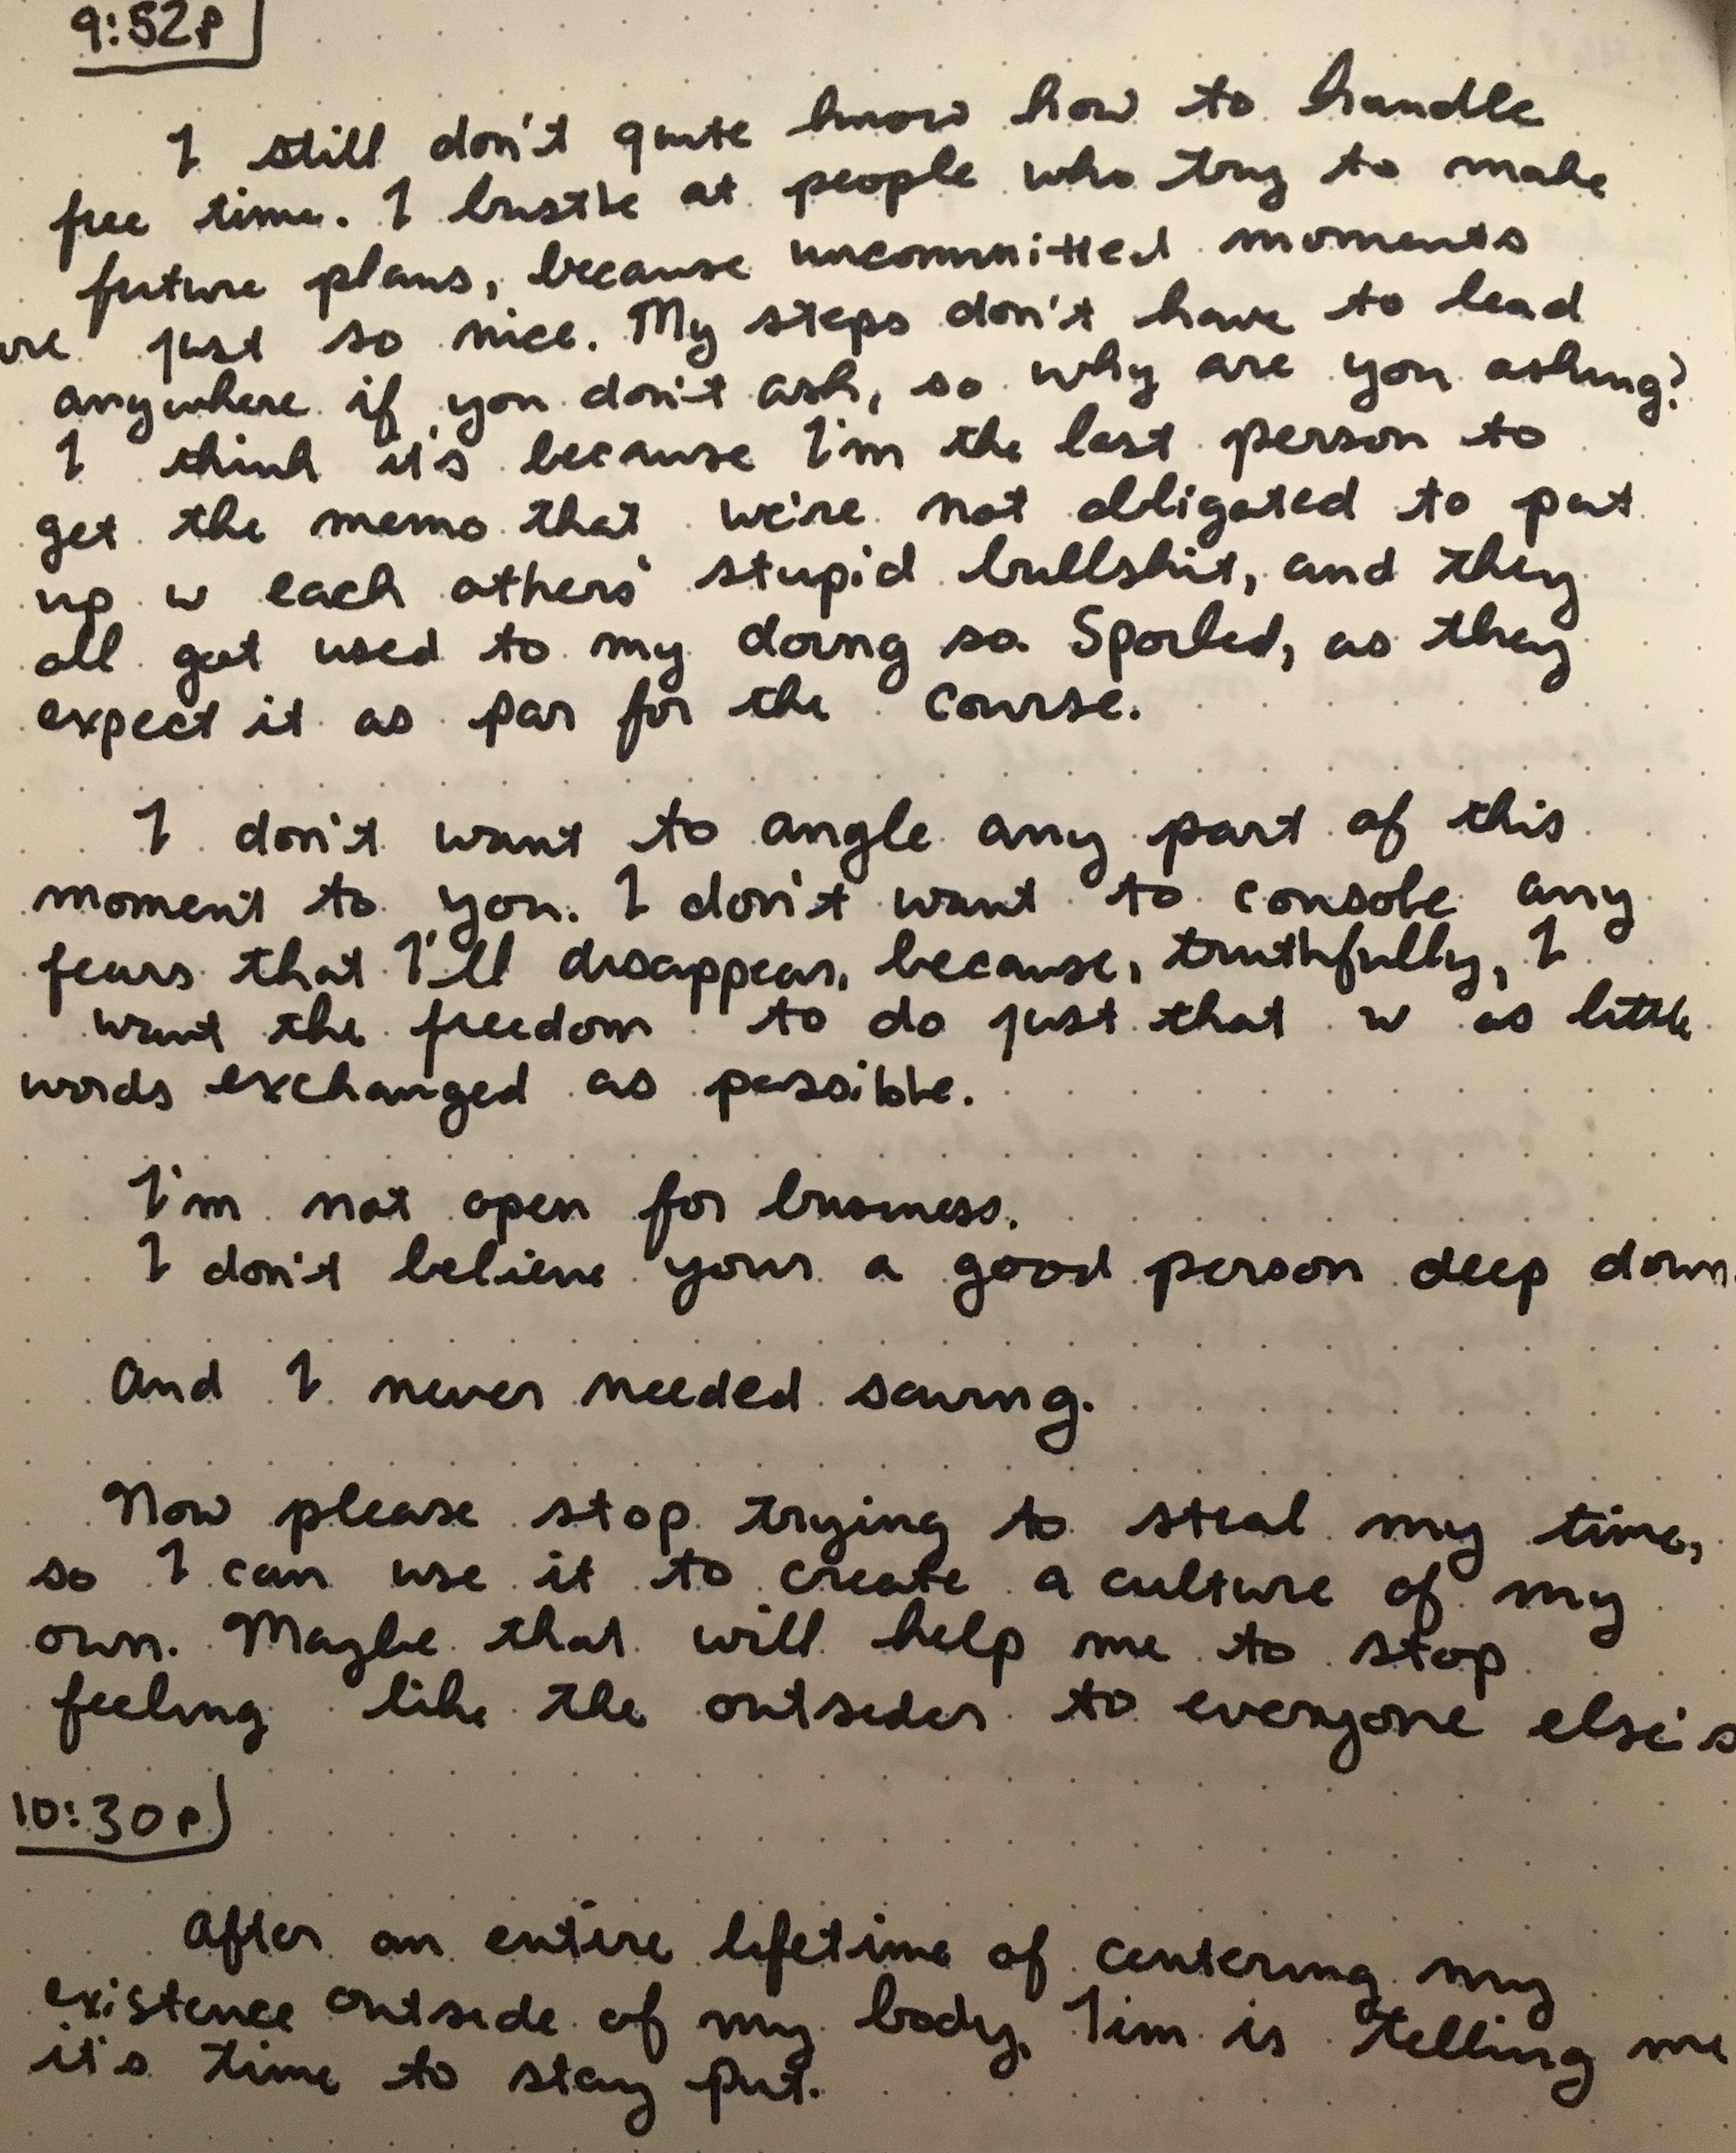 9:52P
I still don't quite know how to handle
free time. I bustle at people who try to make
future plans, because uncommitted moments
are just so nice. My steps don't have to lead
anywhere if you don't ask, so why are you asking?
I think it's because I'm the last person to
get the memo that we're not obligated to put
up w each others' stupid bullshit, and they
all got used to my doing so. Spoiled, as they
expect it as par for the course.
I don't want to angle any part of this
moment to you. I don't want to console any
fears that I'll disappear, because, truthfully, I
want the freedom to do just that w as little
words exchanged as possible.
I'm not open for business.
I don't believe your a good person deep down.
And I never needed saving.
Now please stop trying to steal my time,
so I can use it to create a culture of my
own. Maybe that will help me to stop
feeling like the outsider to everyone else's
10:30P
After an entire lifetime of centering my
existence outside of my body, Tim is telling me
it's time to stay put.